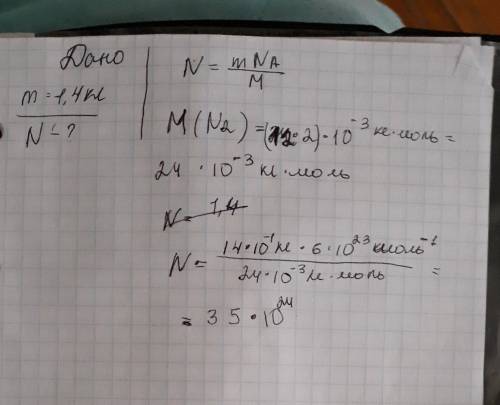 Дано
m = 1,4 кг
N = ?
N = mNA / M
M (N2) = (12·2)·10⁻³ кг·моль =
24 · 10⁻³ кг·моль
N = 1,4
N = 14·10⁻¹кг · 6·10²³ кмоль⁻¹ / 24·10⁻³кг·моль =
= 35·10²⁴